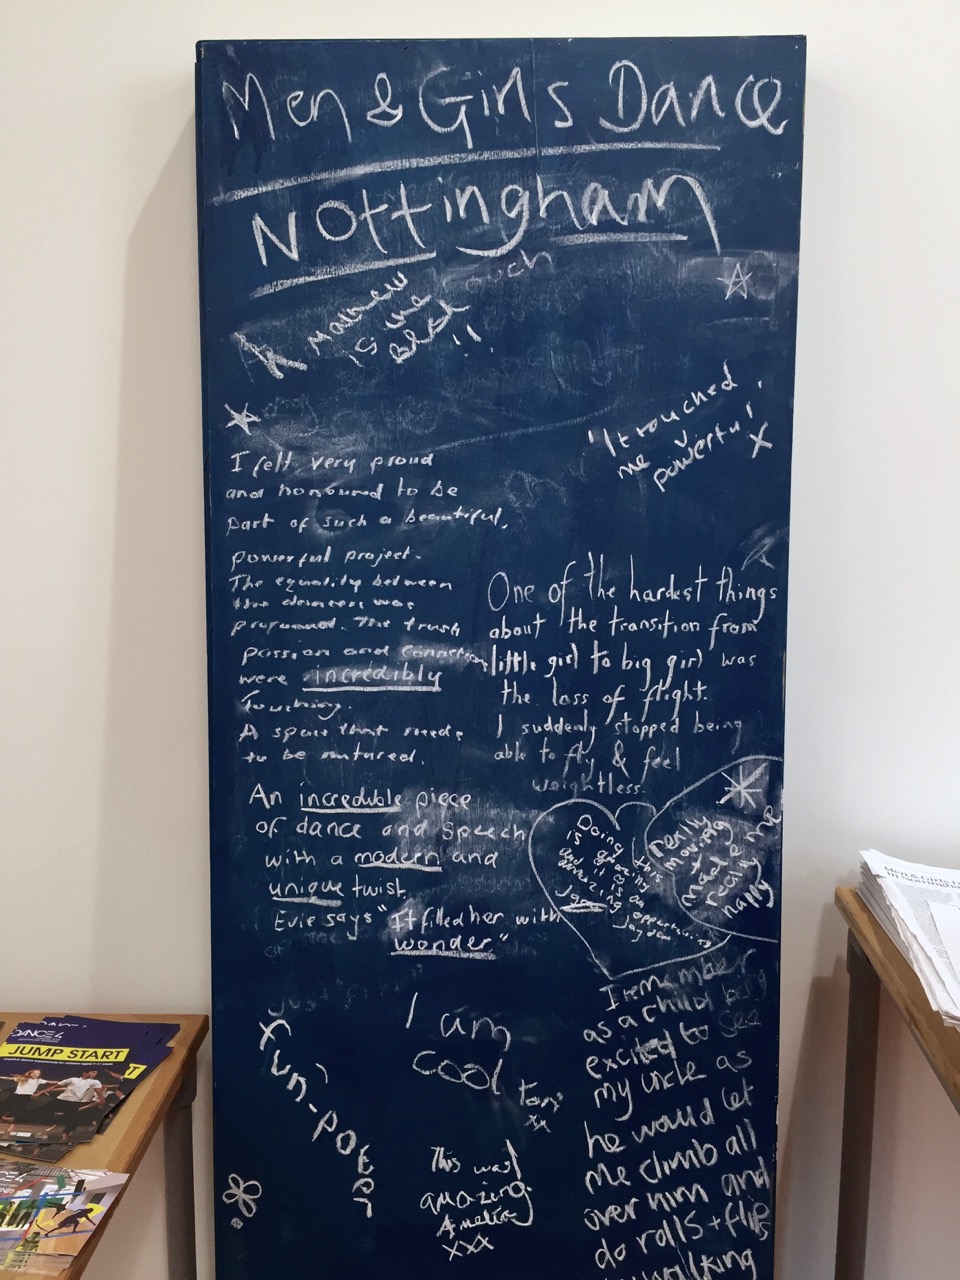 Men & Girls Dance
Nottingham
is the
!!
"It touched
me
powerful'
X
I felt very proud
and honoured to be
part of such a beautiful,
powerful project.
The equality between
the dancers was
profound. The trust
passion and connection
were incredibly
Touching.
A space that needs
to be nutured.
One of the hardest things
about the transition from
little girl to big girl was
the loss of flight.
I suddenly stopped being
able to fly & feel
weightless.
An incredible piece
of dance and speech
with a modern and
unique twist
Evie says "It filled her with
wonder"
Doing this
is amazing
and it is an
amazing opportunity
really
moving
made me
really
happy
I am
cool
xx
Fun-
This was
amazing.
Amelia
xxx
I remember
as a child being
excited to see
my uncle as
he would let
me climb all
over him and
do rolls + flips
walking
DANCE4
JUMP START
Men & Girls